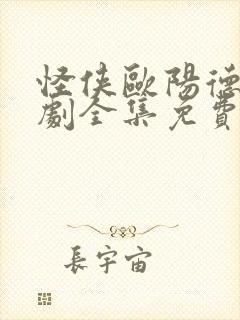 怪俠歐陽德
劇全集免費
長宇宙